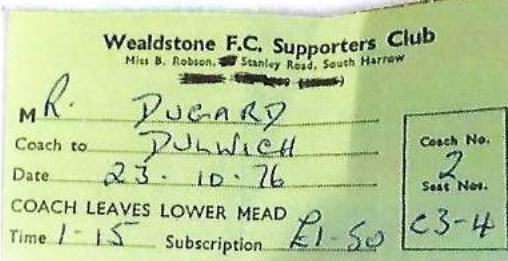 Wealdstone F.C. Supporters Club
Miss B. Robson, Stanley Road, South Harrow
MR. DUGARD
Coach to DULWICH
Date 23.10.76
COACH LEAVES LOWER MEAD
Time 1-15 Subscription £1-50
Coach No.
2
Seat Nos.
C3-4